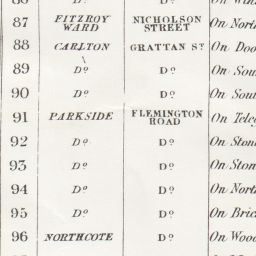 Dº Dº
87 FITZROY WARD NICHOLSON STREET On North
88 CARLTON GRATTAN Sᵀ On Doo
89 Dº Dº On Sou
90 Dº Dº On Sou
91 PARKSIDE FLEMINGTON ROAD On Teleg
92 Dº Dº On Ston
93 Dº Dº On Ston
94 Dº Dº On North
95 Dº Dº On Bric
96 NORTHCOTE Dº On Wood